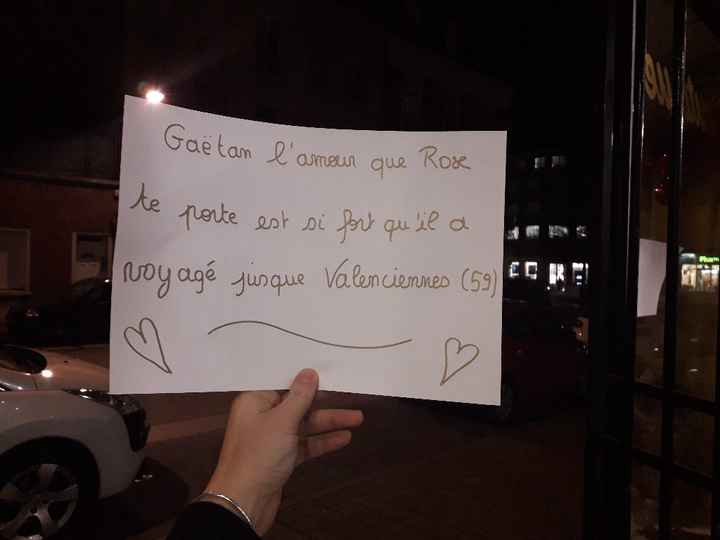 Gaëtan l'amour que Rose
te porte est si fort qu'il a
voyagé jusque Valenciennes (59)